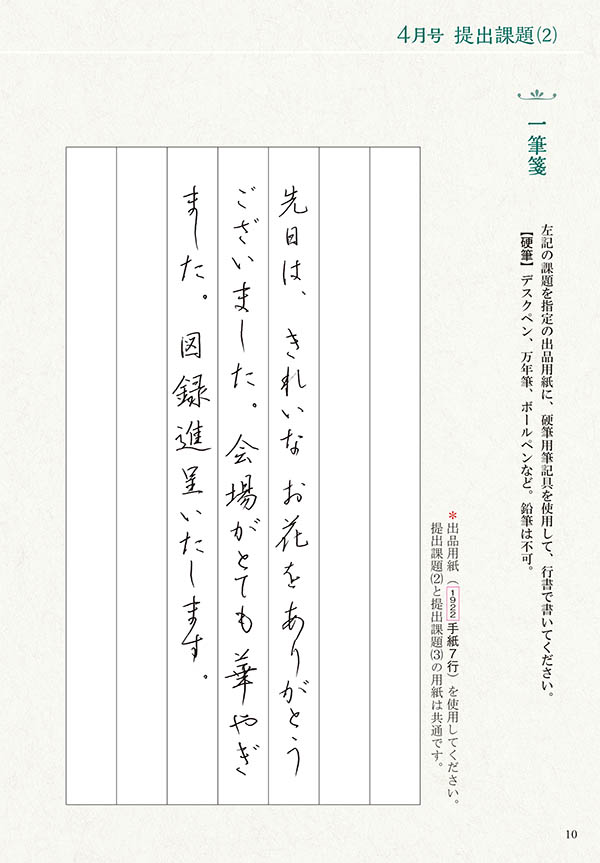 4月号 提出課題(2)
一筆箋
左記の課題を指定の出品用紙に、硬筆用筆記具を使用して、行書で書いてください。
【硬筆】デスクペン、万年筆、ボールペンなど。鉛筆は不可。
*出品用紙(1922手紙7行)を使用してください。
提出課題(2)と提出課題(3)の用紙は共通です。
先日は、きれいなお花をありがとう
ございました。会場がとても華やぎ
ました。図録進呈いたします。
10